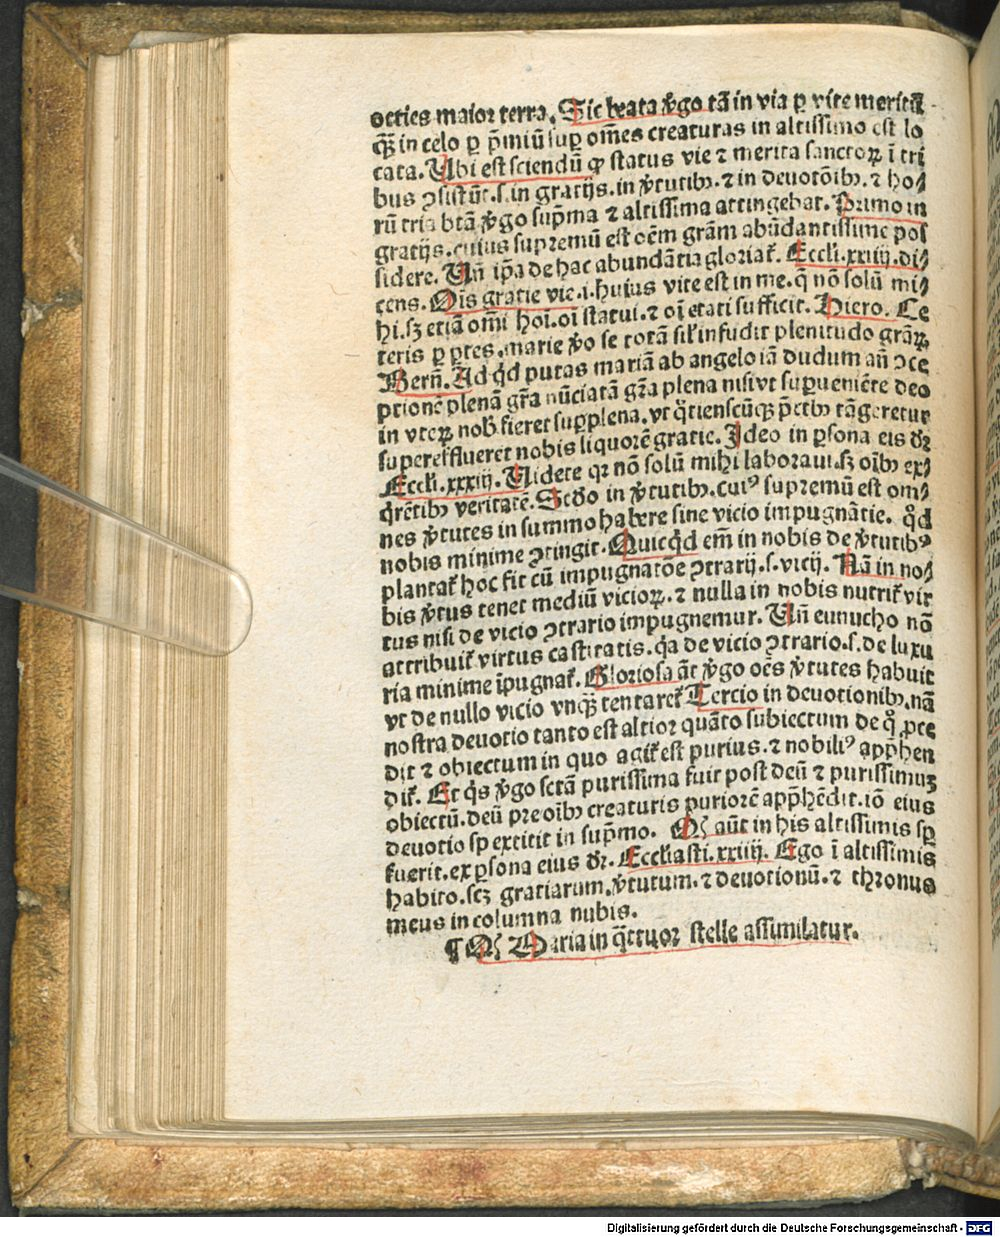 octies maior terra. Sic beata v̄go tā in via ꝑ vite meritū
qꝫ̄ in celo ꝑ p̄miū suꝑ om̄es creaturas in altissimo est lo
cata. Ubi est sciendū ꝙ status vie ⁊ merita sanctoꝝ ī tri
bus ꝯsistūt.s.in gratijs.in v̄tutibꝰ.⁊ in deuotōibꝰ.⁊ ho⸗
rū tria btā v̄go sup̄ma ⁊ altissima attingebat. Primo in
gratijs.cuius supremū est oēm grām abūdantissime pos
sidere. Un̄ ip̄a de hac abundātia gloriat̄. Eccli.xxiiij.di⸗
cens. Ois gratie vie.i.huius vite est in me.q̄ nō solū mi⸗
hi.sꝫ etiā om̄i hoi.oī statui.⁊ oī etati sufficit. Hiero. Ce
teris ꝑ ꝑtes.marie v̄o se totā sil̄ infudit plenitudo grāꝝ
Bern̄. Ad qd̄ putas mariā ab angelo iā dudum an̄ ꝯce
ptionē plenā gr̄a nūciatā gr̄a plena nisi vt suꝑueniēte deo
in vteꝝ nob̄ fieret suꝑplena.vt q̄tienscūqꝫ p̄ctibꝰ tāgeretur
supereffueret nobis liquorē gratie. Ideo in ꝑsona eiꝰ dr̄
Eccli.xxxiij. Uidete qꝛ nō solū mihi laboraui.sꝫ oībꝰ ex⸗
q̄rētibꝰ veritatē. Scd̄o in v̄tutibꝰ.cuiꝰ supremū est om⸗
nes v̄tutes in summo habere sine vicio impugnātie. qd̄
nobis minime ꝯtingit. Quicqd̄ em̄ in nobis de v̄tutibꝰ
plantat̄ hoc fit cū impugnatōe ꝯtrarij.s.vicij. Nā in no⸗
bis v̄tus tenet mediū vicioꝝ.⁊ nulla in nobis nutrit̄ vir
tus nisi de vicio ꝯtrario impugnemur. Un̄ eunucho nō
attribuit̄ virtus castitatis.q̄a de vicio ꝯtrario.s.de luxu
ria minime īpugnat̄. Gloriosa āt v̄go oēs v̄tutes habuit
vt de nullo vicio vnqꝫ̄ tentaret̄ Tercio in deuotionibꝰ.nā
nostra deuotio tanto est altior quāto subiectum de q̄ ꝓce
dit ⁊ obiectum in quo agit̄ est purius.⁊ nobiliꝰ app̄hen
dit̄. Et q̄s v̄go sctā purissima fuit post deū ⁊ purissimuꝫ
obiectū.deū pre oībꝰ creaturis puriorē app̄hēdit.iō eius
deuotio sꝑ extitit in sup̄mo. Qꝫ aūt in his altissimis sꝑ
fuerit.ex ꝑsona eius dr̄. Eccliasti.xxiiij. Ego ī altissimis
habito.scꝫ gratiarum.v̄tutum.⁊ deuotionū.⁊ thronus
meus in columna nubis.
¶ Qꝫ Maria in q̄ttuor stelle assimilatur.
Digitalisierung gefördert durch die Deutsche Forschungsgemeinschaft - DFG